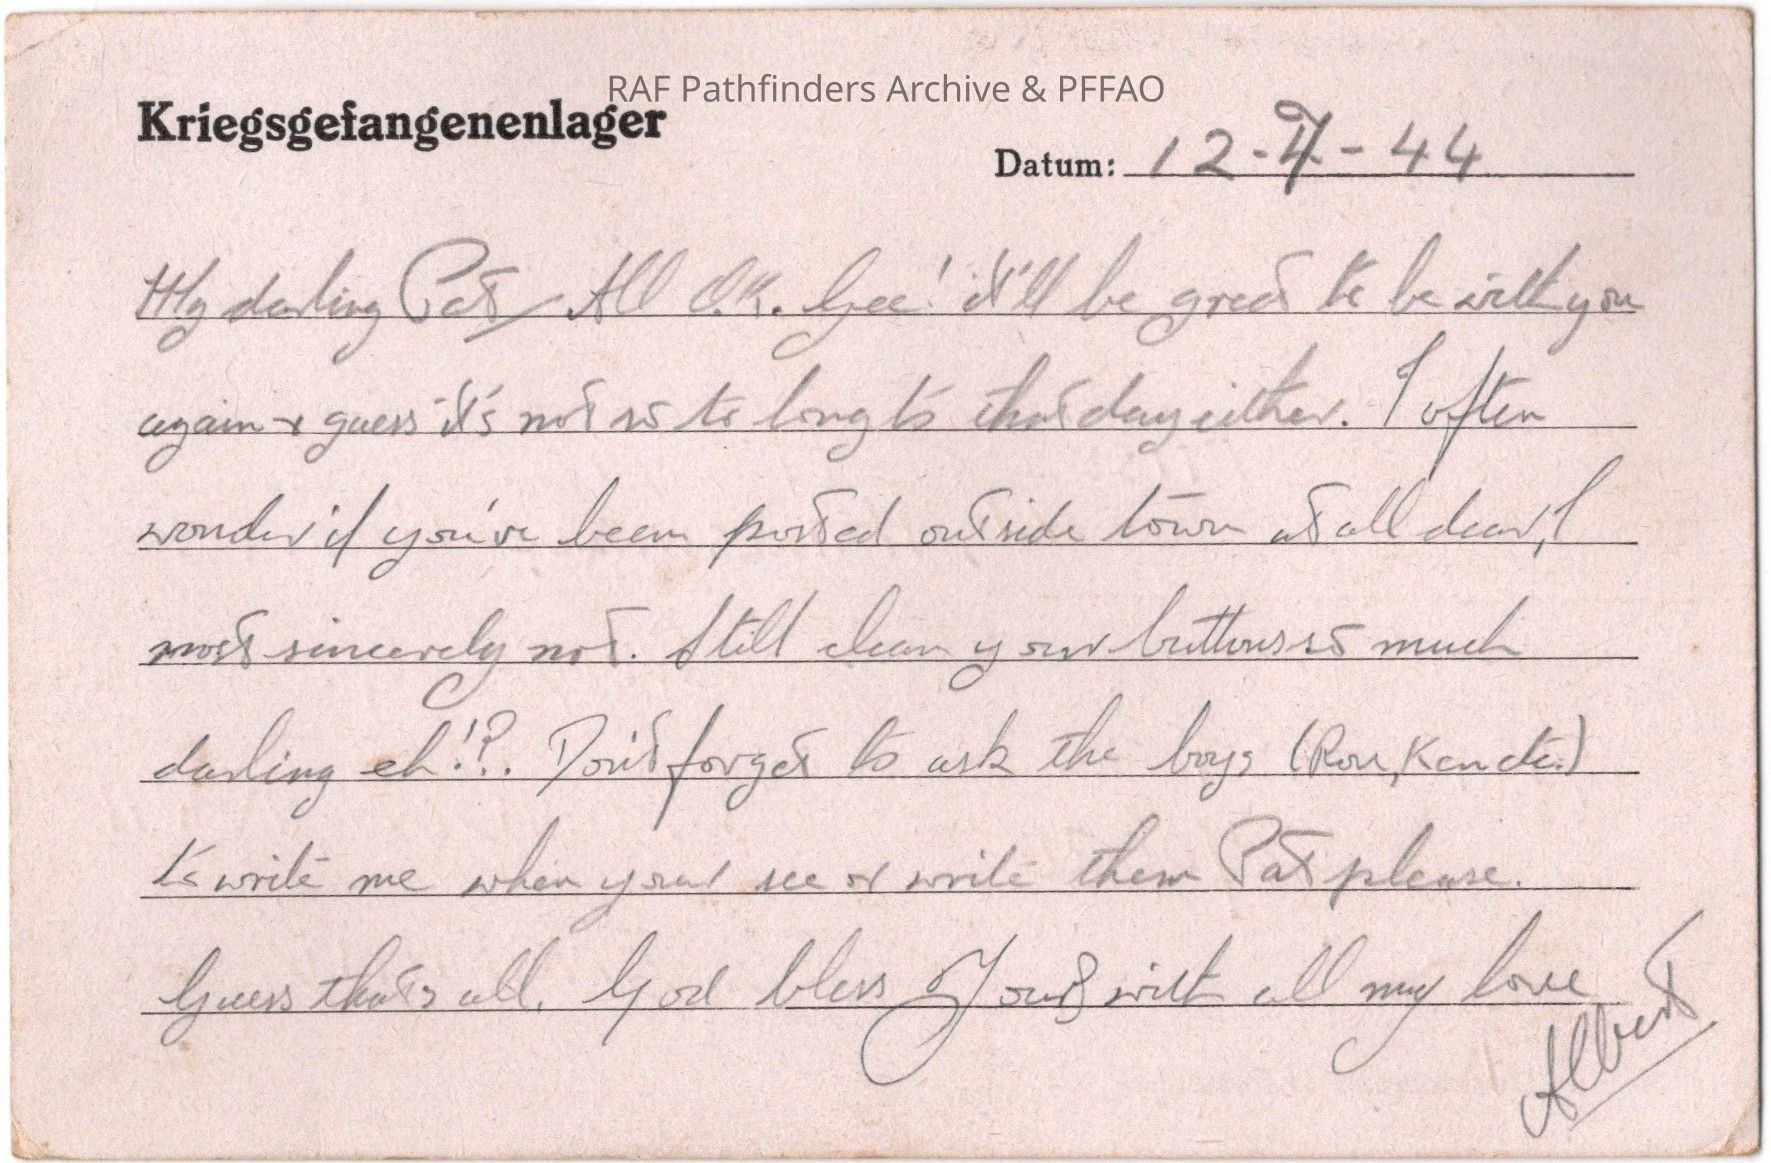 RAF Pathfinders Archive & PFFAO
Kriegsgefangenenlager
Datum: 12-4-44
My darling Pat All O.K. Gee! it'll be great to be with you
again & guess it's not so to long to that day either. I often
wonder if you've been posted outside town at all dear, I
most sincerely not. Still clean your buttons so much
darling eh!?. Don't forget to ask the boys (Ron, Ken etc.)
to write me when your see or write them Pat please.
Guess that's all. God bless Yours with all my love
Albert